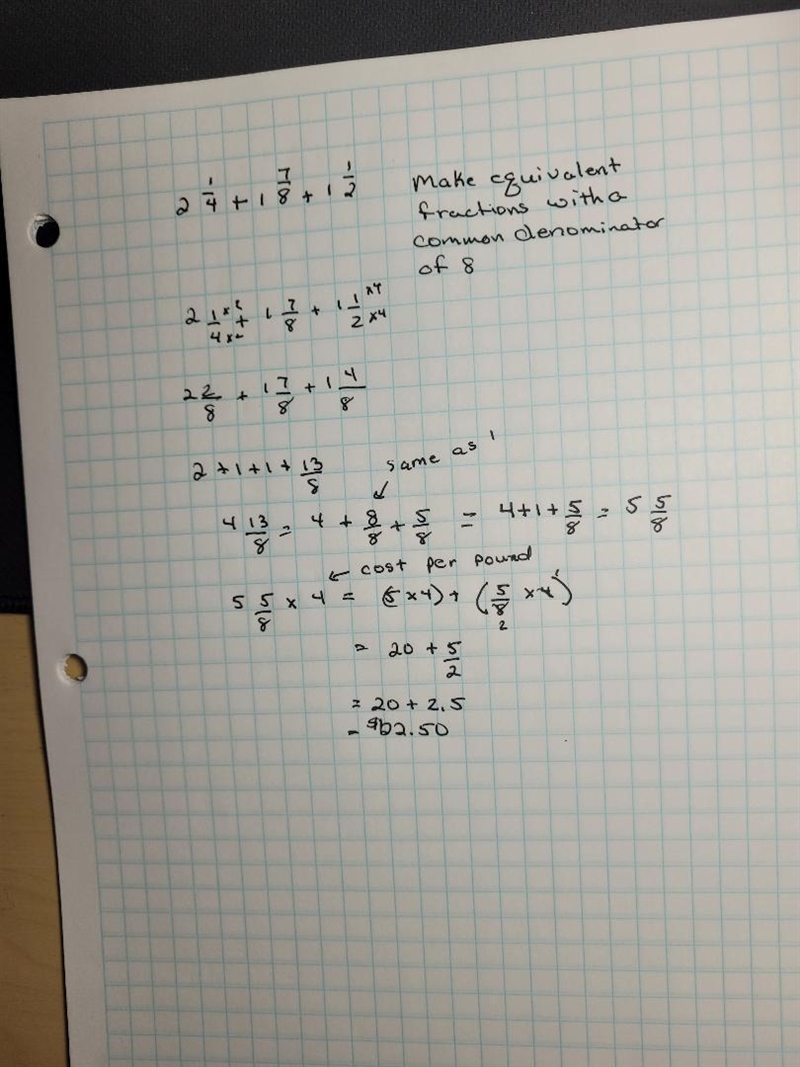 2 1/4 + 1 7/8 + 1 1/2
Make equivalent
fractions with a
common denominator
of 8
2 1/4 + 1 7/8 + 1 1/2 x4 x4
2 2/8 + 1 7/8 + 1 4/8
2 + 1 + 1 + 13/8
same as 1
4 13/8 = 4 + 8/8 + 5/8 = 4 + 1 + 5/8 = 5 5/8
← cost per pound
5 5/8 x 4 = (5 x 4) + (5/8 x 4)
1
2
= 20 + 5/2
= 20 + 2.5
= $22.50